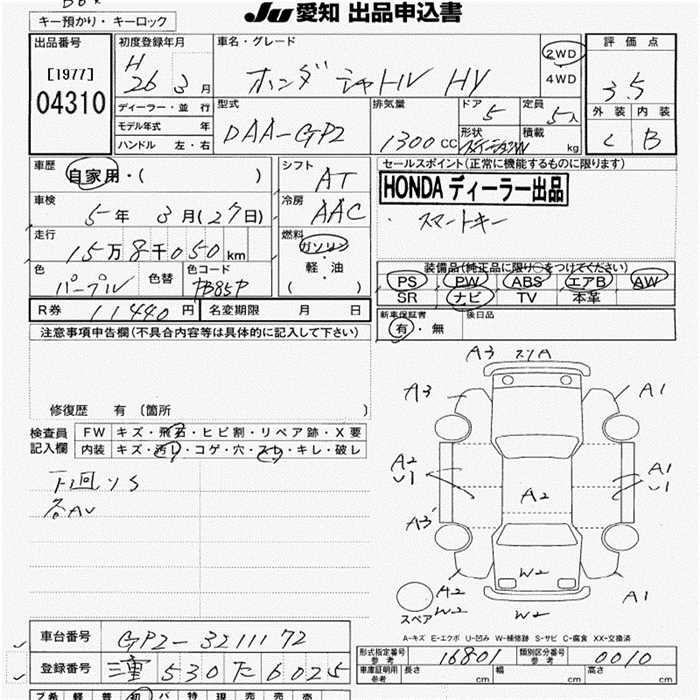 JU 愛知 出品申込書
キー預かり・キーロック
出品番号
[1977]
04310
初度登録年月
H 26 3月
車名・グレード
ホンダ シャトル HV
2WD
4WD
評価点
3.5
外装 内装
C B
ディーラー・並行
モデル年式 年
ハンドル 左・右
型式
DAA-GP2
排気量
1300CC
ドア
5
定員
5人
形状
積載
kg
車歴
自家用・( )
車検
5年 3月(27日)
走行
15万8千050km
色
パープル
色替
色コード
PB85P
シフト
AT
冷房
AAC
燃料
ガソリン
・
軽・油
( )
セールスポイント(正常に機能するものに限ります)
HONDA ディーラー出品
・スマートキー
装備品(純正品に限り○をつけてください)
PS PW ABS エアB AW
SR ナビ TV 本革
新車保証書
有・無
後日品
R券 11440円 名変期限 月 日
注意事項申告欄(不具合内容等は具体的に記入して下さい)
修復歴 有 〔箇所 〕
検査員
記入欄
FW キズ・飛石・ヒビ割・リペア跡・X要
内装 キズ・汚れ・コゲ・穴・スレ・キレ・破レ
下回りS
各AU
A3 スリA
A3
A1
A2
U1
A2
A1
U1
A3
A2
W2
W2
W2
A1
スペア
A-キズ E-エクボ U-凹み W-補修跡 S-サビ C-腐食 XX-交換済
車台番号 GP2-3211172
登録番号 三重 530 た 6025
形式指定番号
参考
16801
類別区分番号
参考
0010
車庫証明用
参考
長さ cm 幅 cm 高さ cm